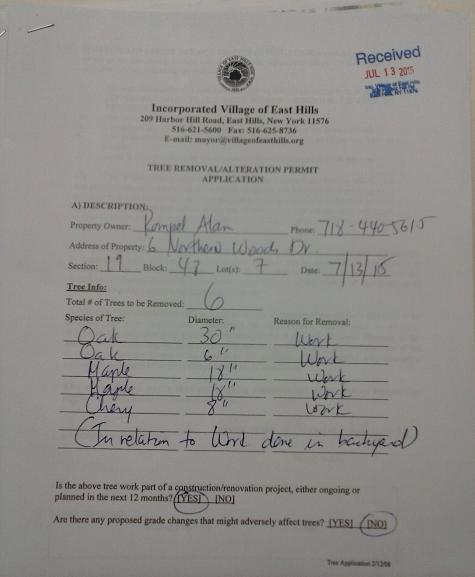 Received
JUL 13 2015
Incorporated Village of East Hills
209 Harbor Hill Road, East Hills, New York 11576
516-621-5600 Fax: 516-625-8736
E-mail: mayor@villageofeasthills.org
TREE REMOVAL/ALTERATION PERMIT
APPLICATION
A) DESCRIPTION:
Property Owner: Rompel Alan Phone: 718-440-5615
Address of Property: 6 Northern Woods Dr.
Section: 19 Block: 47 Lot(s): 7 Date: 7/13/15
Tree Info:
Total # of Trees to be Removed: 6
Species of Tree: Diameter: Reason for Removal:
Oak 30" Work
Oak 6" Work
Maple 18" Work
Maple 18" Work
Chery 8" Work
(In relation to Word done in backyard)
Is the above tree work part of a construction/renovation project, either ongoing or
planned in the next 12 months? [YES] [NO]
Are there any proposed grade changes that might adversely affect trees? [YES] [NO]
Tree Application 2/12/08